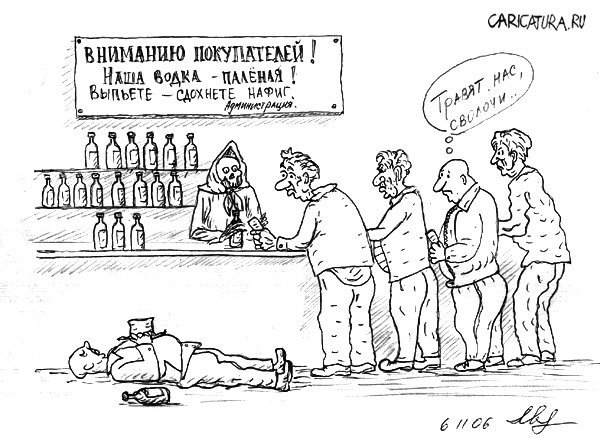 CARICATURA.RU
ВНИМАНИЮ ПОКУПАТЕЛЕЙ!
НАША ВОДКА - ПАЛЁНАЯ!
ВЫПЬЕТЕ - СДОХНЕТЕ НАФИГ.
АДМИНИСТРАЦИЯ.
ТРАВЯТ НАС,
СВОЛОЧИ...
6 11 06